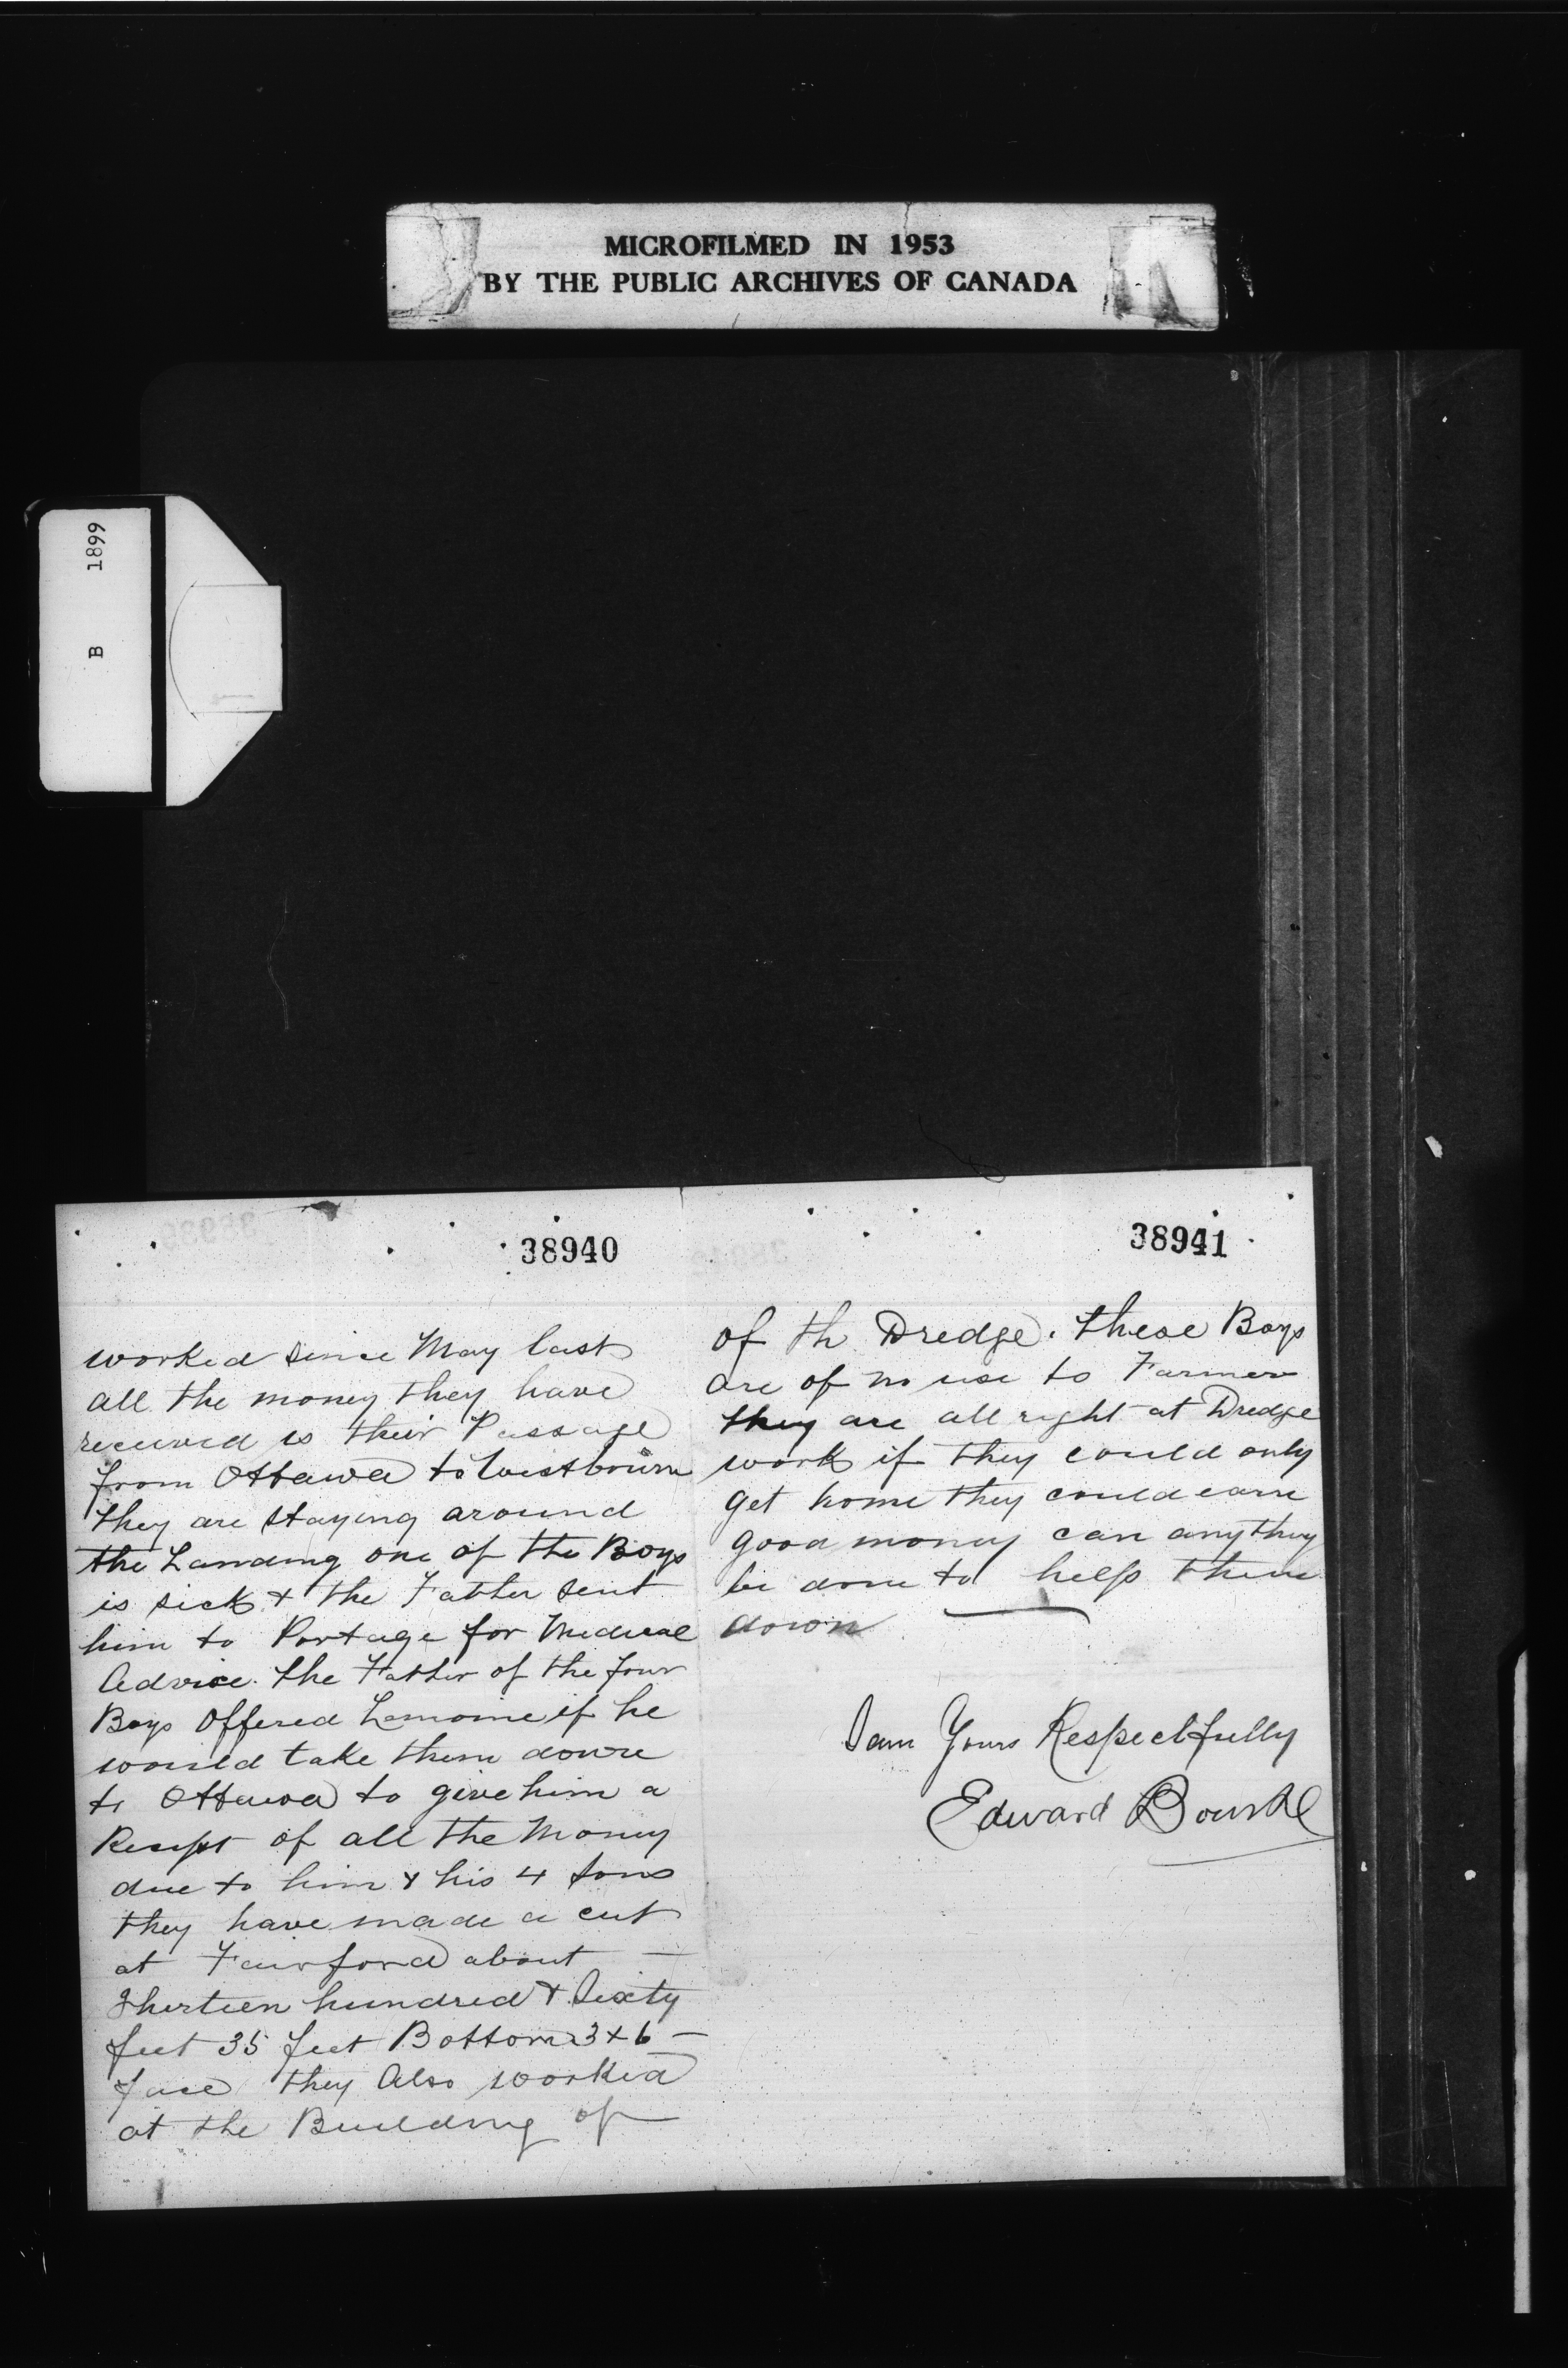 MICROFILMED IN 1953
BY THE PUBLIC ARCHIVES OF CANADA
B 1899
38940
worked since May last
all the money they have
received is their Passage
from Ottawa to Westbourn
they are staying around
the Landing one of the Boys
is sick & the Father sent
him to Portage for Medical
Advice. the Father of the four
Boys Offered Lemoine if he
would take them down
to Ottawa to give him a
Receipt of all the Money
due to him & his 4 sons
they have made a cut
at Fairford about —
Thirteen hundred & Sixty
feet 35 feet Bottom 3 & 6 —
face they Also worked
at the Building of
38941
of th Dredge. these Boys
are of no use to Farmers
they are all right at Dredge
work if they could only
get home they could earn
good money can anything
be done to help them
down
I am Yours Respectfully
Edward Bourke